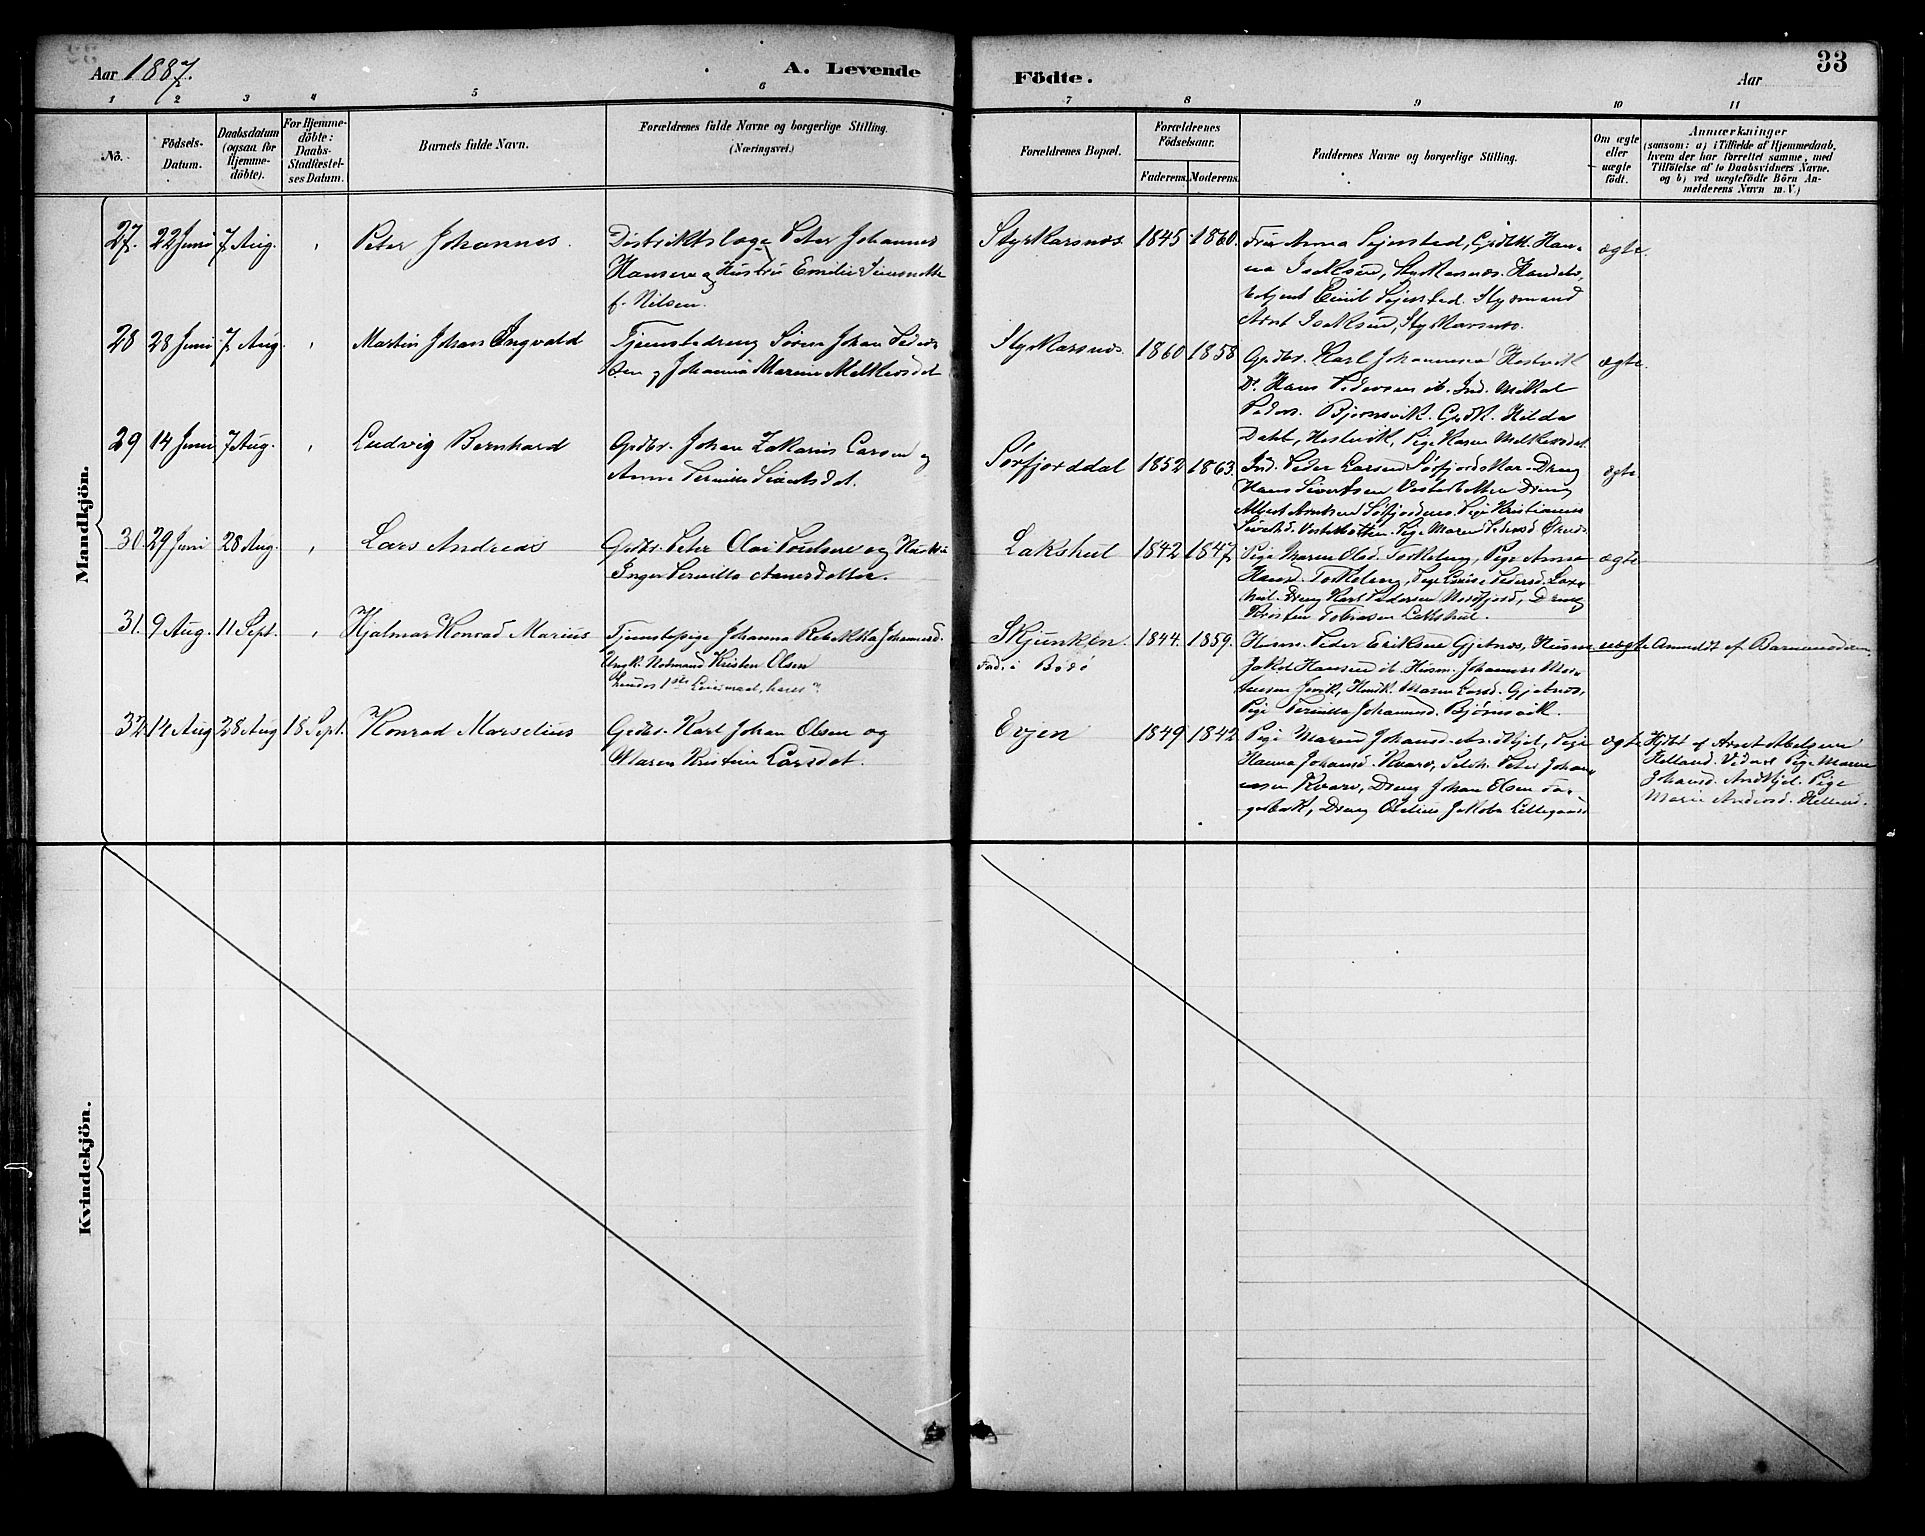 Aar 1887. A. Levende Födte. Aar 33
1 2 3 4 5 6 7 8 9 10 11
No.
Födsels-Datum.
Daabsdatum (ogsaa for Hjemme-döbte).
For Hjemme-döbte: Daabs-Stadfæstel-ses Datum.
Barnets fulde Navn.
Forældrenes fulde Navne og borgerlige Stilling.
(Næringsvei.)
Forældrenes Bopæl.
Forældrenes Födselsaar.
Faderens. Moderens.
Faddernes Navne og borgerlige Stilling.
Om ægte eller uægte födt.
Anmærkninger
(saasom: a) i Tilfælde af Hjemmedaab,
hvem der har forrettet samme, med
Tilföielse af to Daabsvidners Navne.
og b) ved uægtefödte Börn An-
melderens Navn m. V.)
Mandkjön.
27. 22 Juni 7 Aug. " Peter Johannes.
Distriktslæge Peter Johannes
Hansen og Hustru Emilie
f. Nilsen.
Styrkarsnæs. 1845 1860.
Frue Anna Sejersted, Gpdtk. Han-
na Isaksen, Styrkarsnæs. Handels-
betjent Emil Sejersted. Styrmand
Arnt Isaksen, Styrkarsnæs.
ægte
28 28 Juni 7 Aug. " Martin Johan Ingvald
Tjenstedreng Sören Johan Peder-
sen og Johanna Marine Melkersdat
Styrkarsnæs. 1860 1858
Gpdbr. Karl Johannesen Hestvik
Do. Hans Pedersen ib. Ind. Mikal
Peders. Bjørnsvik. Gpdk. Hilda
Dahl, Hestvik, Pige Karen Melkersdat.
ægte
29 14 Juni 7 Aug. " Ludvig Bernhard
Gpdbr. Johan Zakarias Larsen og
Anne Pernille Sivertsdat.
Sørfjorddal 1852 1863.
Ind. Peder Larsen Sørfjordmar. Dreng
Hans Sivertsen Vesterbotten Dreng
Albert Arntsen Sørfjorden. Pige Kristianna
Sivertsd. Vesterbotten. Pige Maren Pedersd
ægte
30. 29 Juni 28 Aug. " Lars Andreas
Gpdbr. Peter Olai Poulsen og Hustru
Inger Pernilla
Lakshul 1842 1847.
Pige Maren Olsd. Torkeleng, Pige Anna
Hansd. Torkeleng, Pige Louise Pedersd. Lax-
hul. Dreng Karl Pedersen Nordfjord, Dreng
Kristen Tobiasen Lakshul.
ægte
31. 9 Aug. 11 Sept. " Hjalmar Konrad Marius
Tjenstepige Johanna Rebekka Johannesd.
Ungk. Nordmand Kristen Olsen
Skjunken. 1844. 1859.
Fad. i Bodø
Husm. Peder Eriksen Gjetnæs, Husm.
Jakob Hansen ib. Husm. Johannes Mor-
tensen Jervik, Husk. Maren Larsd. Gjetnæs,
Pige Pernilla Johannesd. Bjørnsvik.
uægte Anmeldt af Barnemoderen
32. 14 Aug 28 Aug 18 Sept. Konrad Marselius
Gpdbr. Karl Johan Olsen og
Maren Kristine Larsdat.
Evjen 1849 1842
Pige Maren Johansd. Andkjel, Pige
Hanna Johansd. Kvarv, Selveier Peter Johan-
nesen Kvarv, Dreng Johan Olsen
Dreng Jakobs. Lillegaard
ægte
Hjdbt. af Arnt Abelsen
Helland. Vidner Pige Maren
Johansd. Andkjel. Pige
Marie Andersd. Helland.
Kvindekjön.